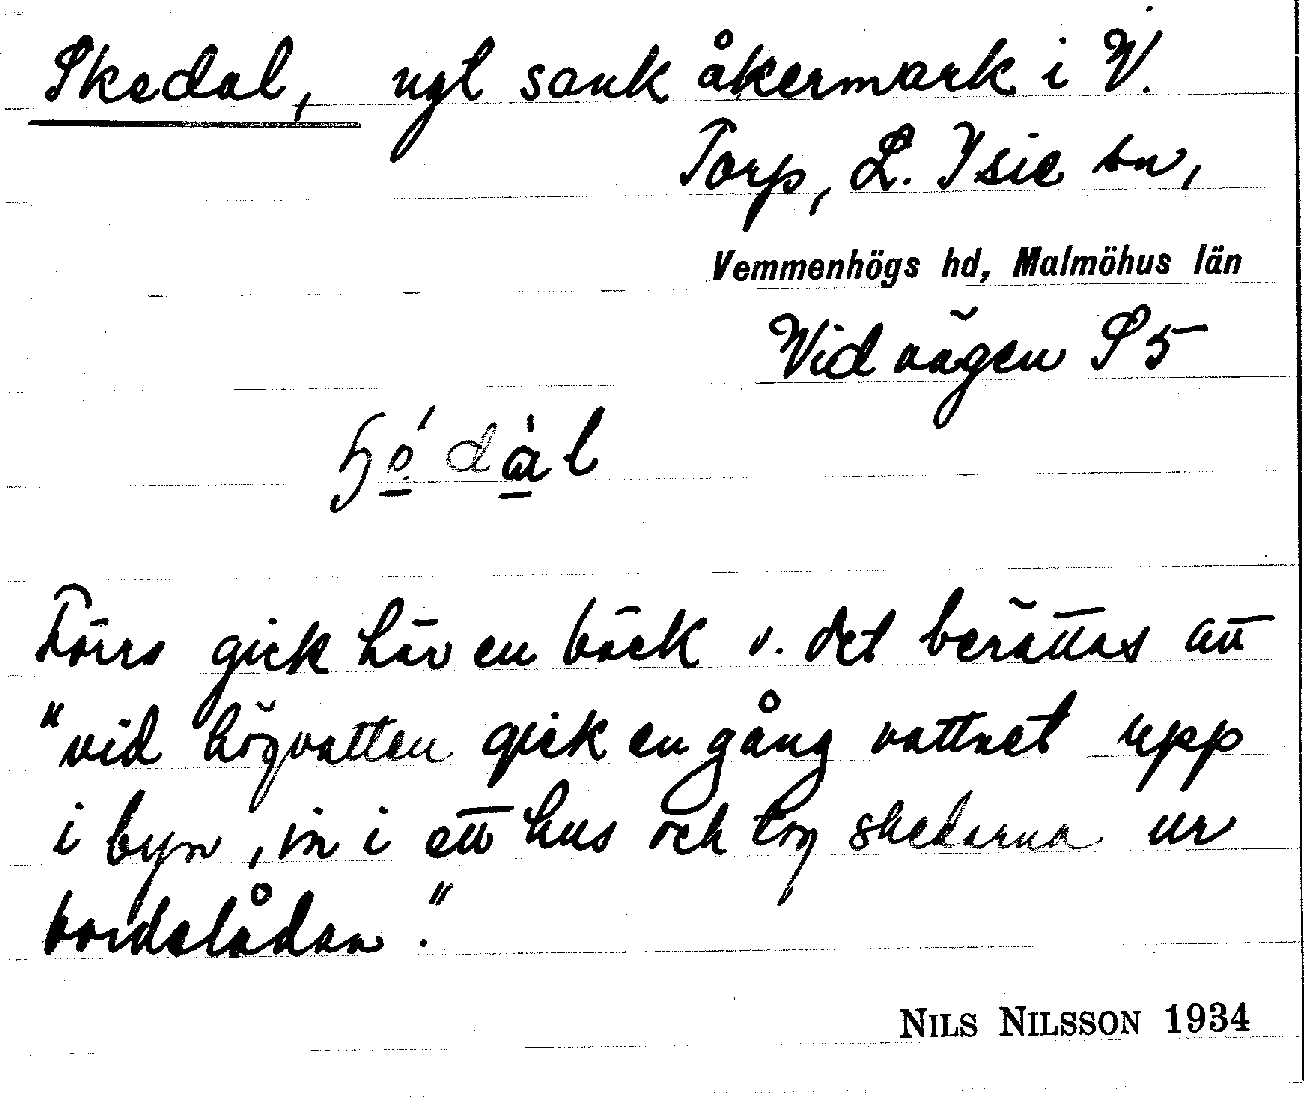 Skedal, ngt sank åkermark i V.
Torp, L. Isie sn,
Vemmenhögs hd, Malmöhus län
Vid vägen S 5
dàl
Förrs gick här en bäck o. det berättas att
"vid högvatten gick en gång vattnet upp
i byn, in i ett hus och tog skedarna ur
bordslådan."
NILS NILSSON 1934